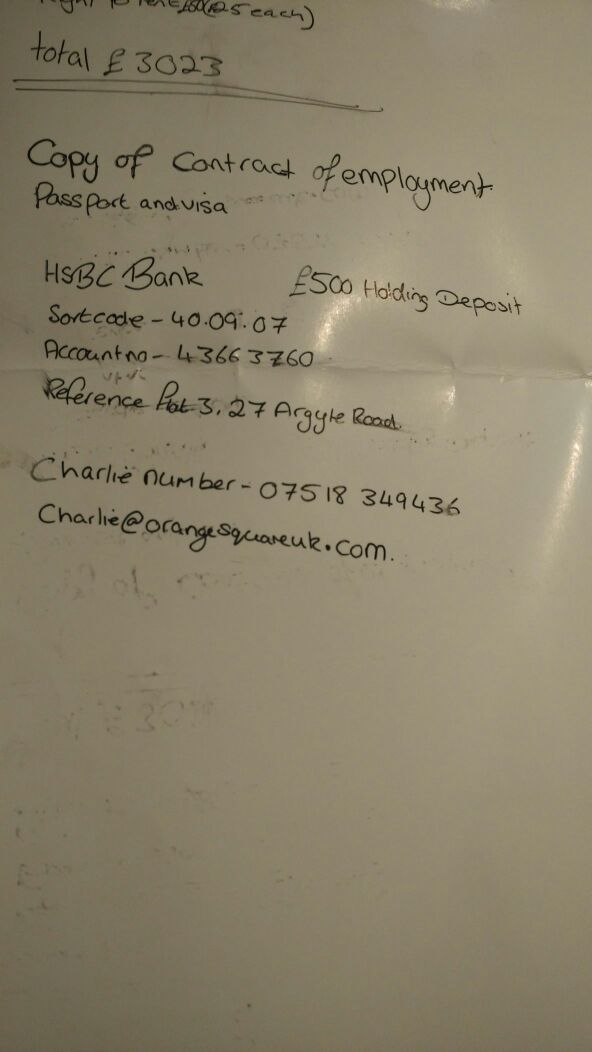 Right to rent £50(£25 each)
total £3023
Copy of Contract of employment
Passport and visa
HSBC Bank £500 Holding Deposit
Sortcode - 40.09.07
Account no - 43663760
Reference flat 3, 27 Argyle Road.
Charlie number - 07518 349436
Charlie@orangesquareuk.com.